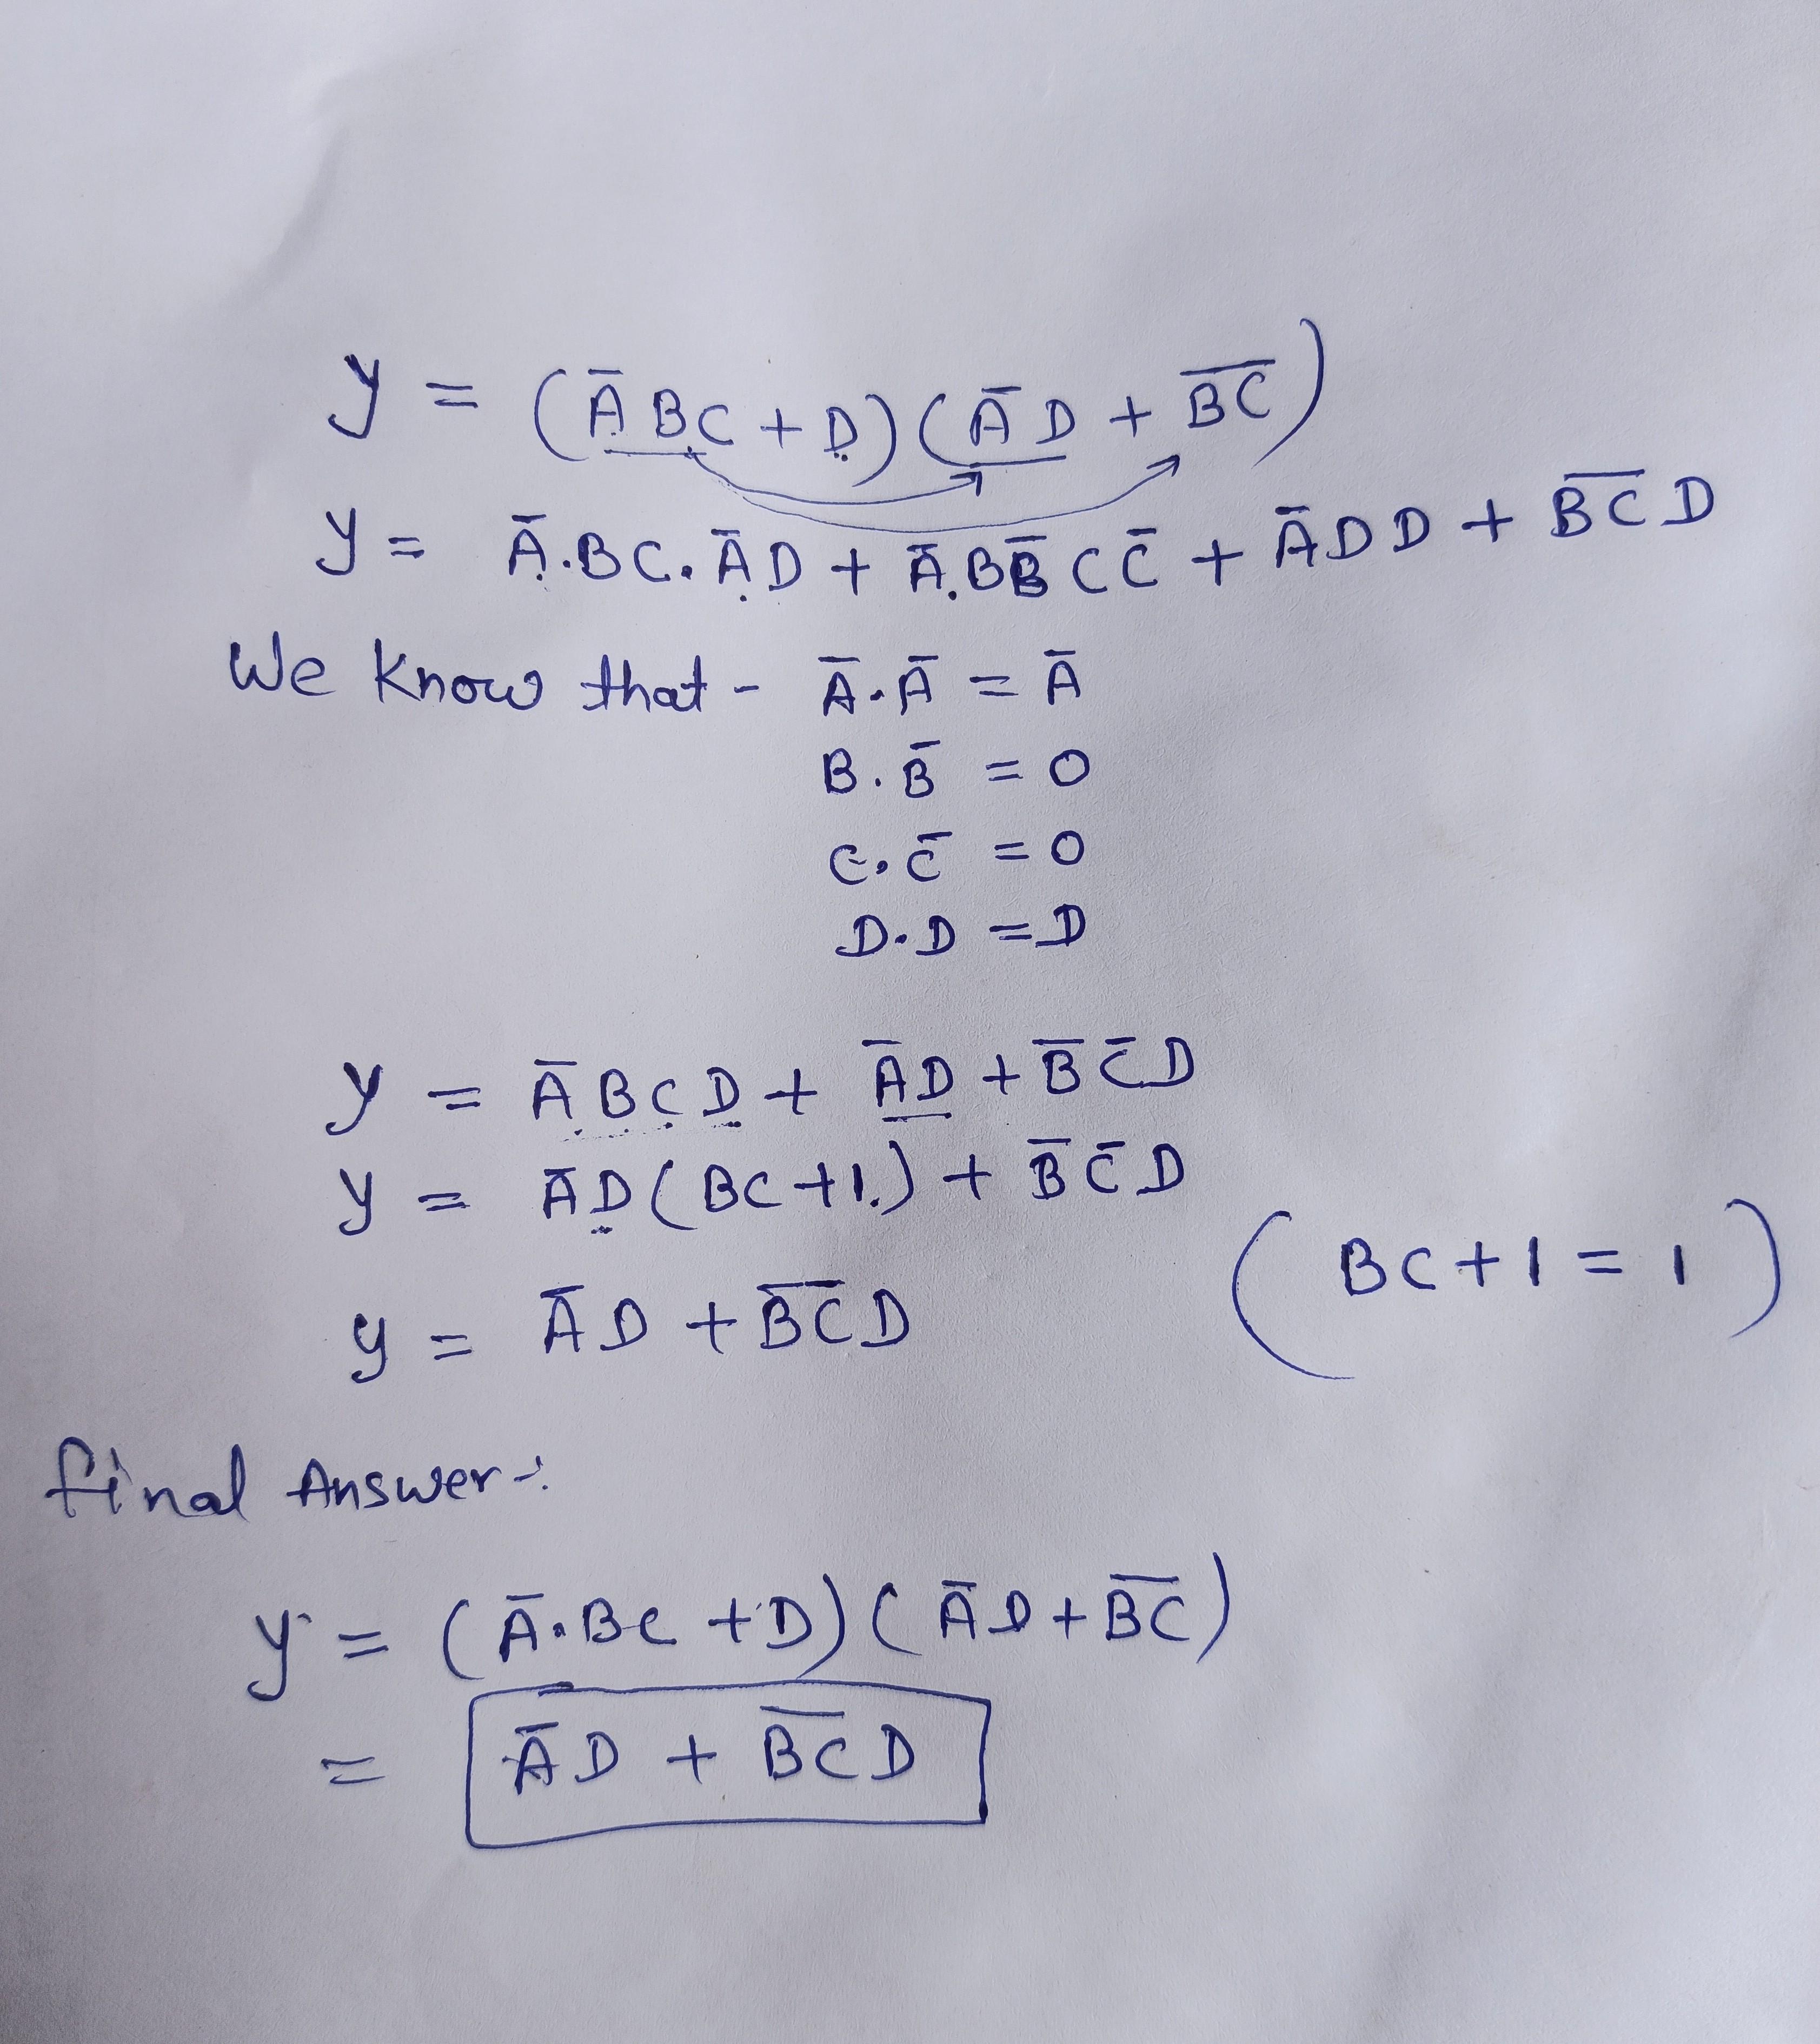 y = (A̅BC + D)(A̅D + B̅C̅)
y = A̅.BC.A̅D + A̅.BB̅CC̅ + A̅DD + B̅C̅D
We know that - A̅.A̅ = A̅
B.B̅ = 0
C.C̅ = 0
D.D = D
y = A̅BCD + A̅D + B̅C̅D
y = A̅D(BC+1.) + B̅C̅D
(BC+1 = 1)
y = A̅D + B̅C̅D
final Answer -:
y = (A̅.BC + D)(A̅D + B̅C̅)
= A̅D + B̅C̅D